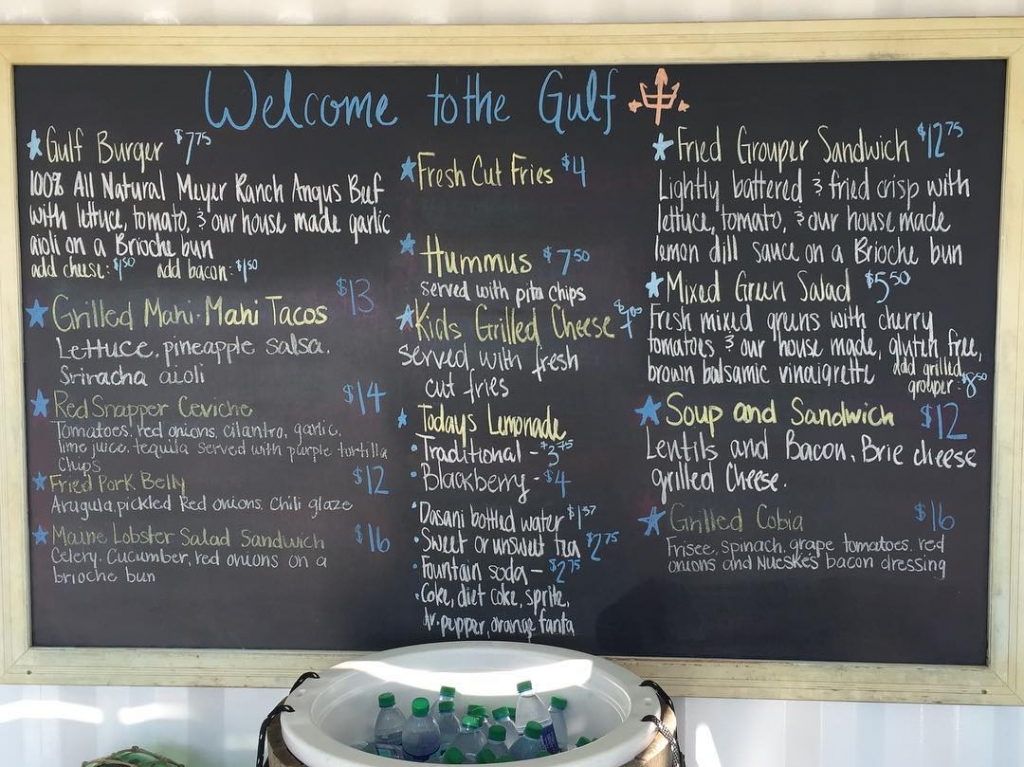 Welcome to the Gulf
Gulf Burger $7.75
100% All Natural Meyer Ranch Angus Beef
with lettuce, tomato, & our house made garlic
aioli on a Brioche bun
add cheese: $1.50 add bacon: $1.50
Grilled Mahi-Mahi Tacos $13
Lettuce, pineapple salsa,
Sriracha aioli
Red Snapper Ceviche $14
Tomatoes, red onions, cilantro, garlic,
lime juice, tequila served with purple turtilla
Chips
Fried Pork Belly $12
Arugula, pickled Red onions, Chili glaze
Maine Lobster Salad Sandwich $16
Celery, Cucumber, red onions on a
brioche bun
Fresh Cut Fries $4
Hummus $7.50
served with pita chips
Kids Grilled Cheese
served with fresh
cut fries
Todays Lemonade
• Traditional - $3.75
• Blackberry - $4
Dasani bottled water
• Sweet or unsweet tea $2.75
• Fountain soda - $2.75
• Coke, diet coke, sprite,
dr. pepper, orange fanta
Fried Grouper Sandwich $12.75
Lightly battered & fried crisp with
lettuce, tomato, & our house made
lemon dill sauce on a Brioche bun
Mixed Green Salad $5.50
Fresh mixed greens with cherry
tomatoes & our house made, gluten free,
brown balsamic vinaigrette add grilled
grouper: $8.50
Soup and Sandwich $12
Lentils and Bacon, Brie cheese
grilled Cheese.
Grilled Cobia $16
Frisee, spinach, grape tomatoes, red
onions and Nueske's bacon dressing